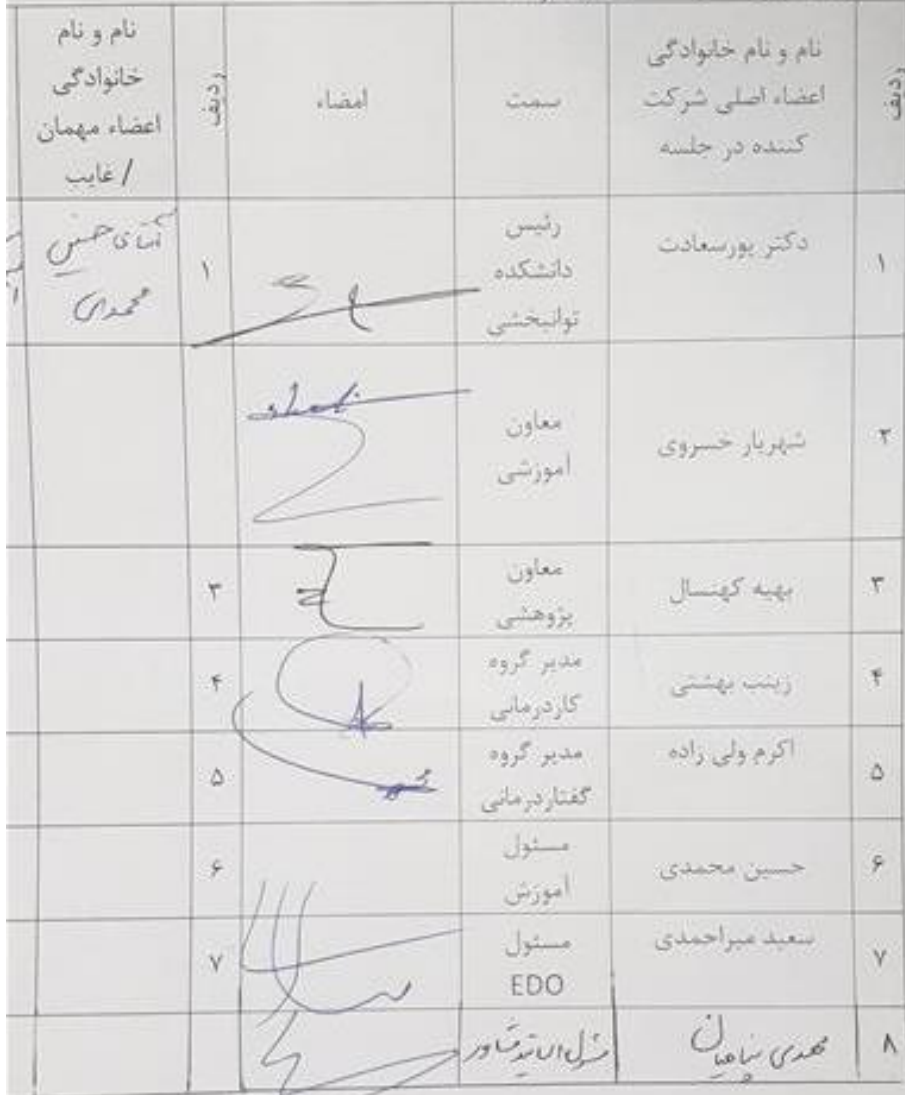 ردیف
نام و نام خانوادگی
اعضاء اصلی شرکت
کننده در جلسه
سمت
امضاء
ردیف
نام و نام
خانوادگی
اعضاء مهمان
/ غایب
۱
دکتر پورسعادت
رئیس
دانشکده
توانبخشی
۱
آقای حسین
محمدی
۲
شهریار خسروی
معاون
آموزشی
۳
بهیه کهنسال
معاون
پژوهشی
۳
۴
زینب بهشتی
مدیر گروه
کاردرمانی
۴
۵
اکرم ولی زاده
مدیر گروه
گفتاردرمانی
۵
۶
حسین محمدی
مسئول
آموزش
۶
۷
سعید میراحمدی
مسئول
EDO
۷
۸
مهدی پناهیان
مسئول اساتید مشاور